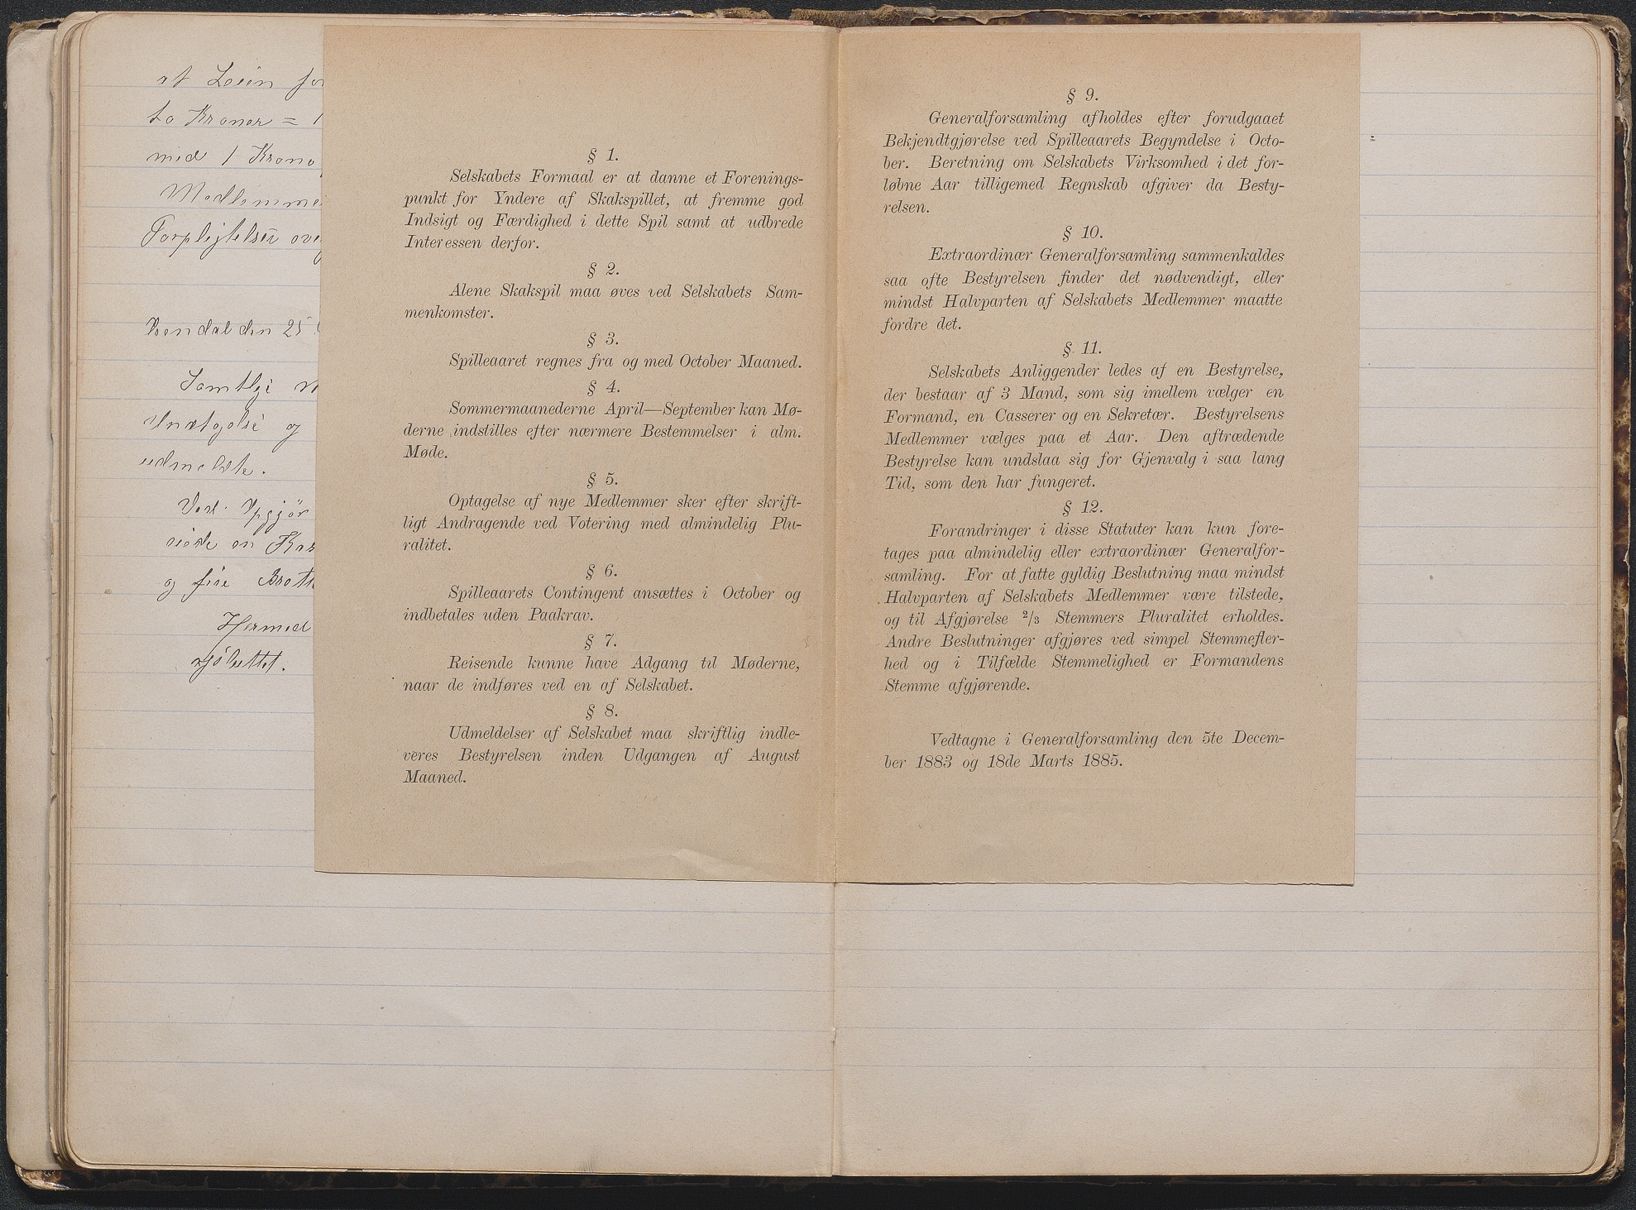 to Kroner = 1
med 1 Krone
Medlemme
den 25
Samtlige
og
udmeldte.
Ved Opgjør
en
og fire
Hermed
§ 1.
Selskabets Formaal er at danne et Forenings-
punkt for Yndere af Skakspillet, at fremme god
Indsigt og Færdighed i dette Spil samt at udbrede
Interessen derfor.
§ 2.
Alene Skakspil maa øves ved Selskabets Sam-
menkomster.
§ 3.
Spilleaaret regnes fra og med October Maaned.
§ 4.
Sommermaanederne April—September kan Mø-
derne indstilles efter nærmere Bestemmelser i alm.
Møde.
§ 5.
Optagelse af nye Medlemmer sker efter skrift-
ligt Andragende ved Votering med almindelig Plu-
ralitet.
§ 6.
Spilleaarets Contingent ansættes i October og
indbetales uden Paakrav.
§ 7.
Reisende kunne have Adgang til Møderne,
naar de indføres ved en af Selskabet.
§ 8.
Udmeldelser af Selskabet maa skriftlig indle-
veres Bestyrelsen inden Udgangen af August
Maaned.
§ 9.
Generalforsamling afholdes efter forudgaaet
Bekjendtgjørelse ved Spilleaarets Begyndelse i Octo-
ber. Beretning om Selskabets Virksomhed i det for-
løbne Aar tilligemed Regnskab afgiver da Besty-
relsen.
§ 10.
Extraordinær Generalforsamling sammenkaldes
saa ofte Bestyrelsen finder det nødvendigt, eller
mindst Halvparten af Selskabets Medlemmer maatte
fordre det.
§ 11.
Selskabets Anliggender ledes af en Bestyrelse,
der bestaar af 3 Mand, som sig imellem vælger en
Formand, en Casserer og en Sekretær. Bestyrelsens
Medlemmer vælges paa et Aar. Den aftrædende
Bestyrelse kan undslaa sig for Gjenvalg i saa lang
Tid, som den har fungeret.
§ 12.
Forandringer i disse Statuter kan kun fore-
tages paa almindelig eller extraordinær Generalfor-
samling. For at fatte gyldig Beslutning maa mindst
Halvparten af Selskabets Medlemmer være tilstede,
og til Afgjørelse 2/3 Stemmers Pluralitet erholdes.
Andre Beslutninger afgjøres ved simpel Stemmefler-
hed og i Tilfælde Stemmelighed er Formandens
Stemme afgjørende.
Vedtagne i Generalforsamling den 5te Decem-
ber 1883 og 18de Marts 1885.